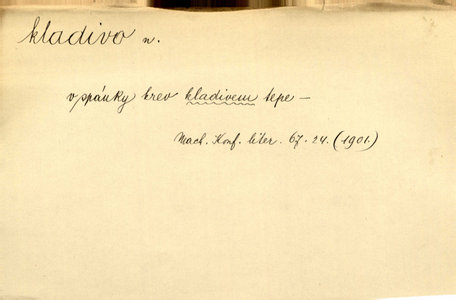 kladivo n.
v spánky krev kladivem tepe —
Mach. Konf. liter. 67. 24. (1901.)